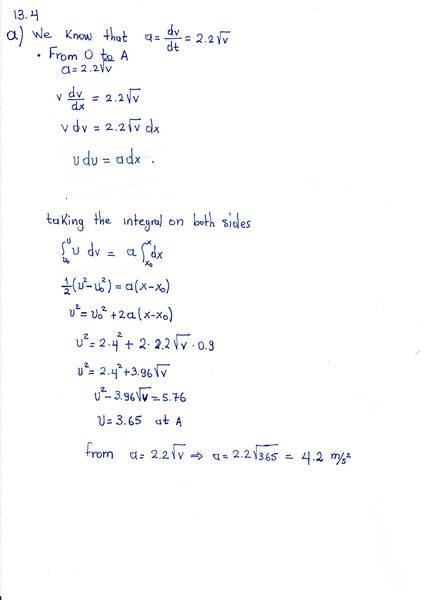 13.4
a) We know that a = dv/dt = 2.2√v
• From O to A
a = 2.2√v
v dv/dx = 2.2√v
v dv = 2.2√v dx
v dv = a dx .
taking the integral on both sides
∫_{v₀}^{v} v dv = a ∫_{x₀}^{x} dx
½(v² - v₀²) = a(x - x₀)
v² = v₀² + 2a(x - x₀)
v² = 2.4² + 2 · 2.2√v · 0.9
v² = 2.4² + 3.96√v
v² - 3.96√v = 5.76
v = 3.65 at A
from a = 2.2√v ⇒ a = 2.2√365 = 4.2 m/s²